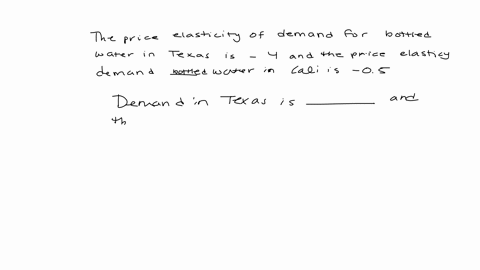 The price elasticity of demand for bottled
water in Texas is - 4 and the price elasticy
demand bottled water in Cali is -0.5
Demand in Texas is ________ and
th